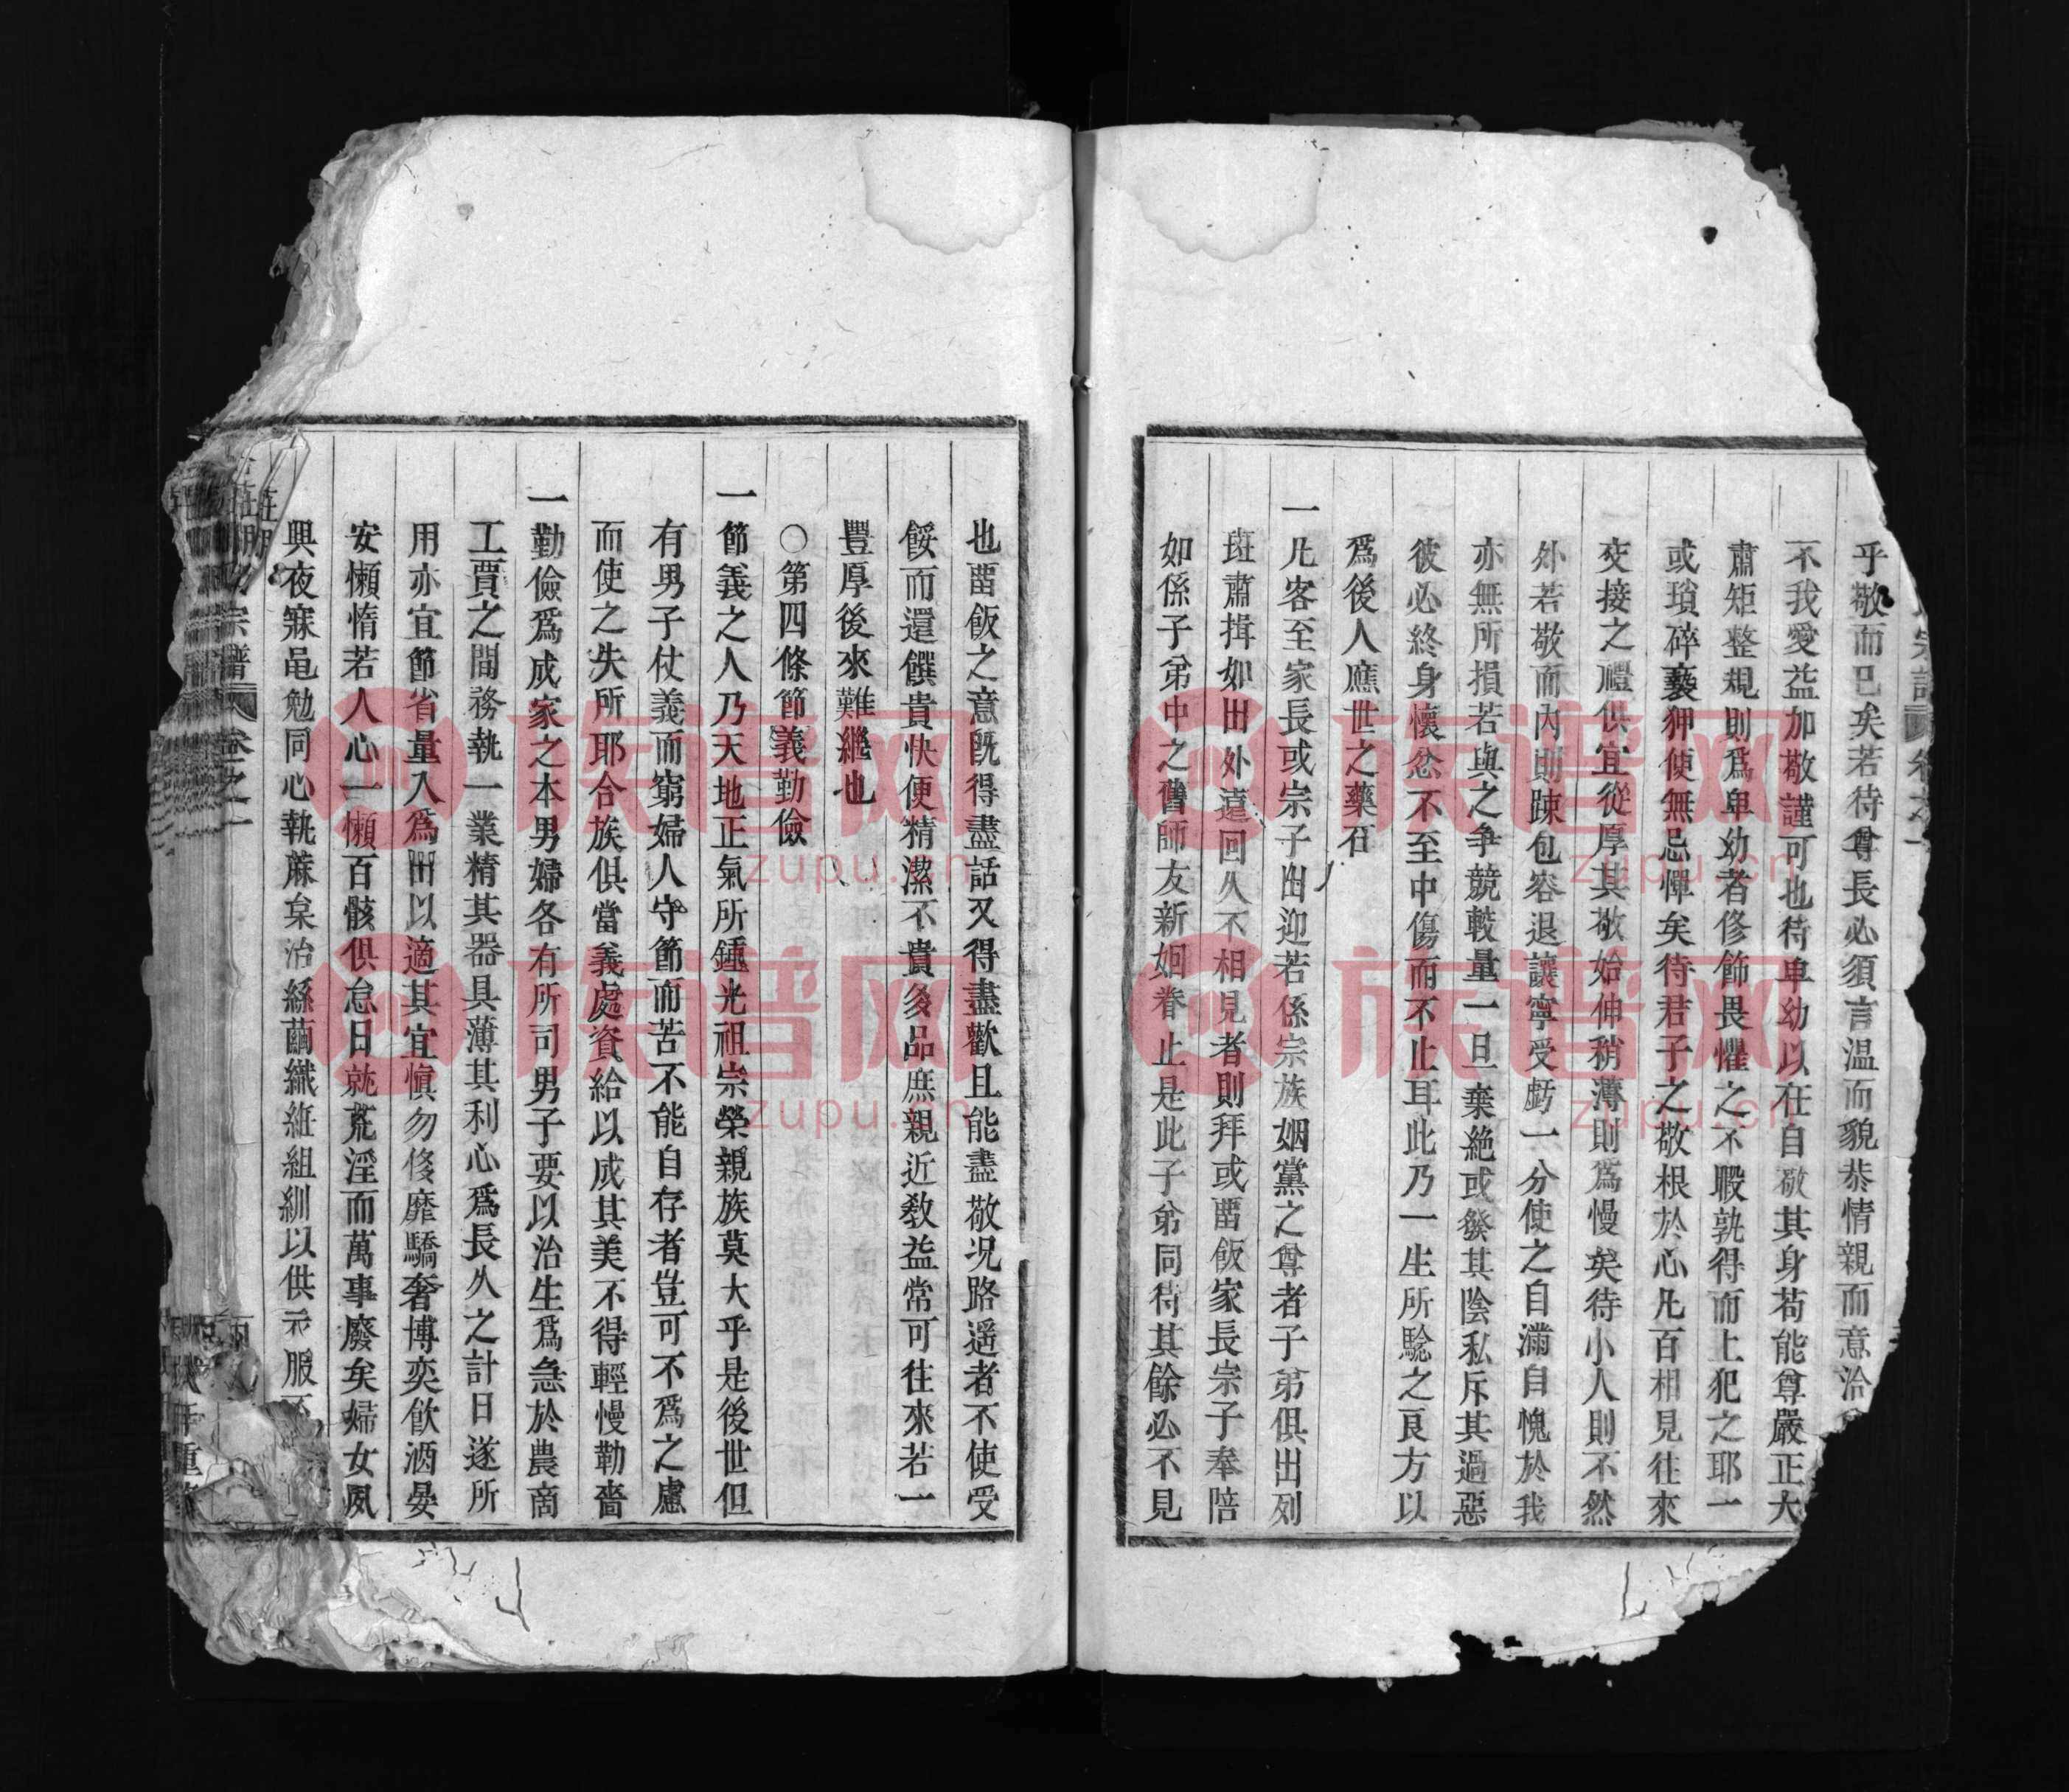 乎敬而已矣若待尊長必須言温而貌恭情親而意洽
不我愛益加敬謹可也待卑幼以在自敬其身苟能尊嚴正大
肅矩整規則爲卑幼者修飾畏懼之不暇孰得而上犯之耶一
或瑣碎褻狎使無忌憚矣待君子之敬根於心凡百相見往來
交接之禮供宜從厚其敬始伸稍薄則爲慢矣待小人則不然
外若敬而內則踈包容退讓寧受虧一分使之自滿自愧於我
亦無所損若與之争競較量一旦棄絶或發其陰私斥其過惡
彼必終身懷忿不至中傷而不止耳此乃一生所騐之良方以
爲後人應世之藥石
一凡客至家長或宗子出迎若係宗族姻黨之尊者子弟俱出列
班肅揖如出外遠回久不相見者則拜或畱飯家長宗子奉陪
如係子弟中之舊師友新姻眷止是此子弟同待其餘必不見
也畱飯之意旣得盡話又得盡歡且能盡敬况路遥者不使受
餒而還饌貴快便精潔不貴多品庶親近教益常可往來若一
豐厚後來難繼也
〇第四條節義勤儉
一節義之人乃天地正氣所鍾光祖宗榮親族莫大乎是後世但
有男子仗義而窮婦人守節而苦不能自存者豈可不爲之慮
而使之失所耶合族俱當義處資給以成其美不得輕慢勒嗇
一勤儉爲成家之本男婦各有所司男子要以治生爲急於農商
工賈之間務執一業精其器具薄其利心爲長久之計日遂所
用亦宜節省量入爲出以適其宜愼勿侈靡驕奢博奕飲酒晏
安懶惰若人心一懶百骸俱怠日就荒淫而萬事廢矣婦女夙
興夜寐黽勉同心執蔴枲治絲繭織維組紃以供衣服
宗譜 卷之一